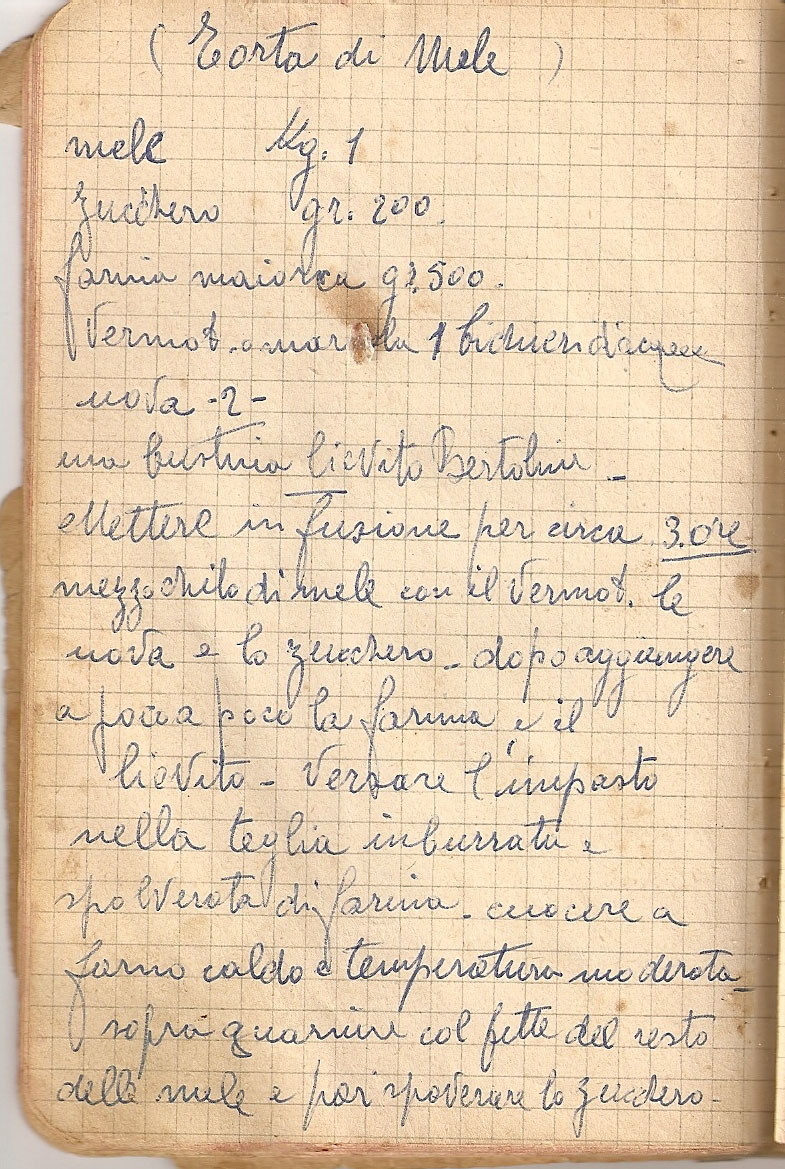 ( Torta di Mele )
mele Kg. 1
Zucchero gr. 200.
farina maiorca gr. 500.
Vermot. o marsala 1 bichieri d'acqua
uova -2-
una bustina lievito Bertolini -
Mettere in fusione per circa 3. ore
mezzo chilo di mele con il Vermot. le
uova e lo zucchero - dopo aggiungere
a poco a poco la farina e il
lievito - Versare l'impasto
nella teglia imburrata e
spolverata di farina - cuocere a
forno caldo e temperatura moderata -
sopra guarnire col fette del resto
delle mele e poi spoverare lo zucchero -